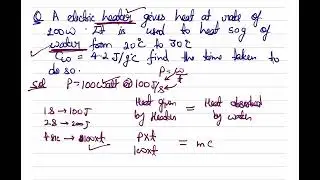 Q A electric heater gives heat at rate of
100W. It is used to heat 50g of
water from 20°C to 30°C
Cw = 4.2 J/g°C find the time taken
to do so.
P = W/t
Sol P = 100 watt or 100 J/s
1s → 100J
2s → 200J
t sec → 100×t
Heat given by Heater = Heat absorbed by water
P×t
100×t = mc